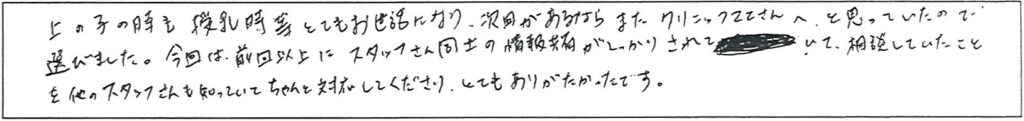 上の子の時も授乳時等とてもお世話になり、次回があるならまたクリニックママさんへ、と思っていたので
選びました。今回は、前回以上にスタッフさん同士の情報共有がしっかりされていて、相談していたこと
を他のスタッフさんも知っていてちゃんと対応してくださり、とてもありがたかったです。